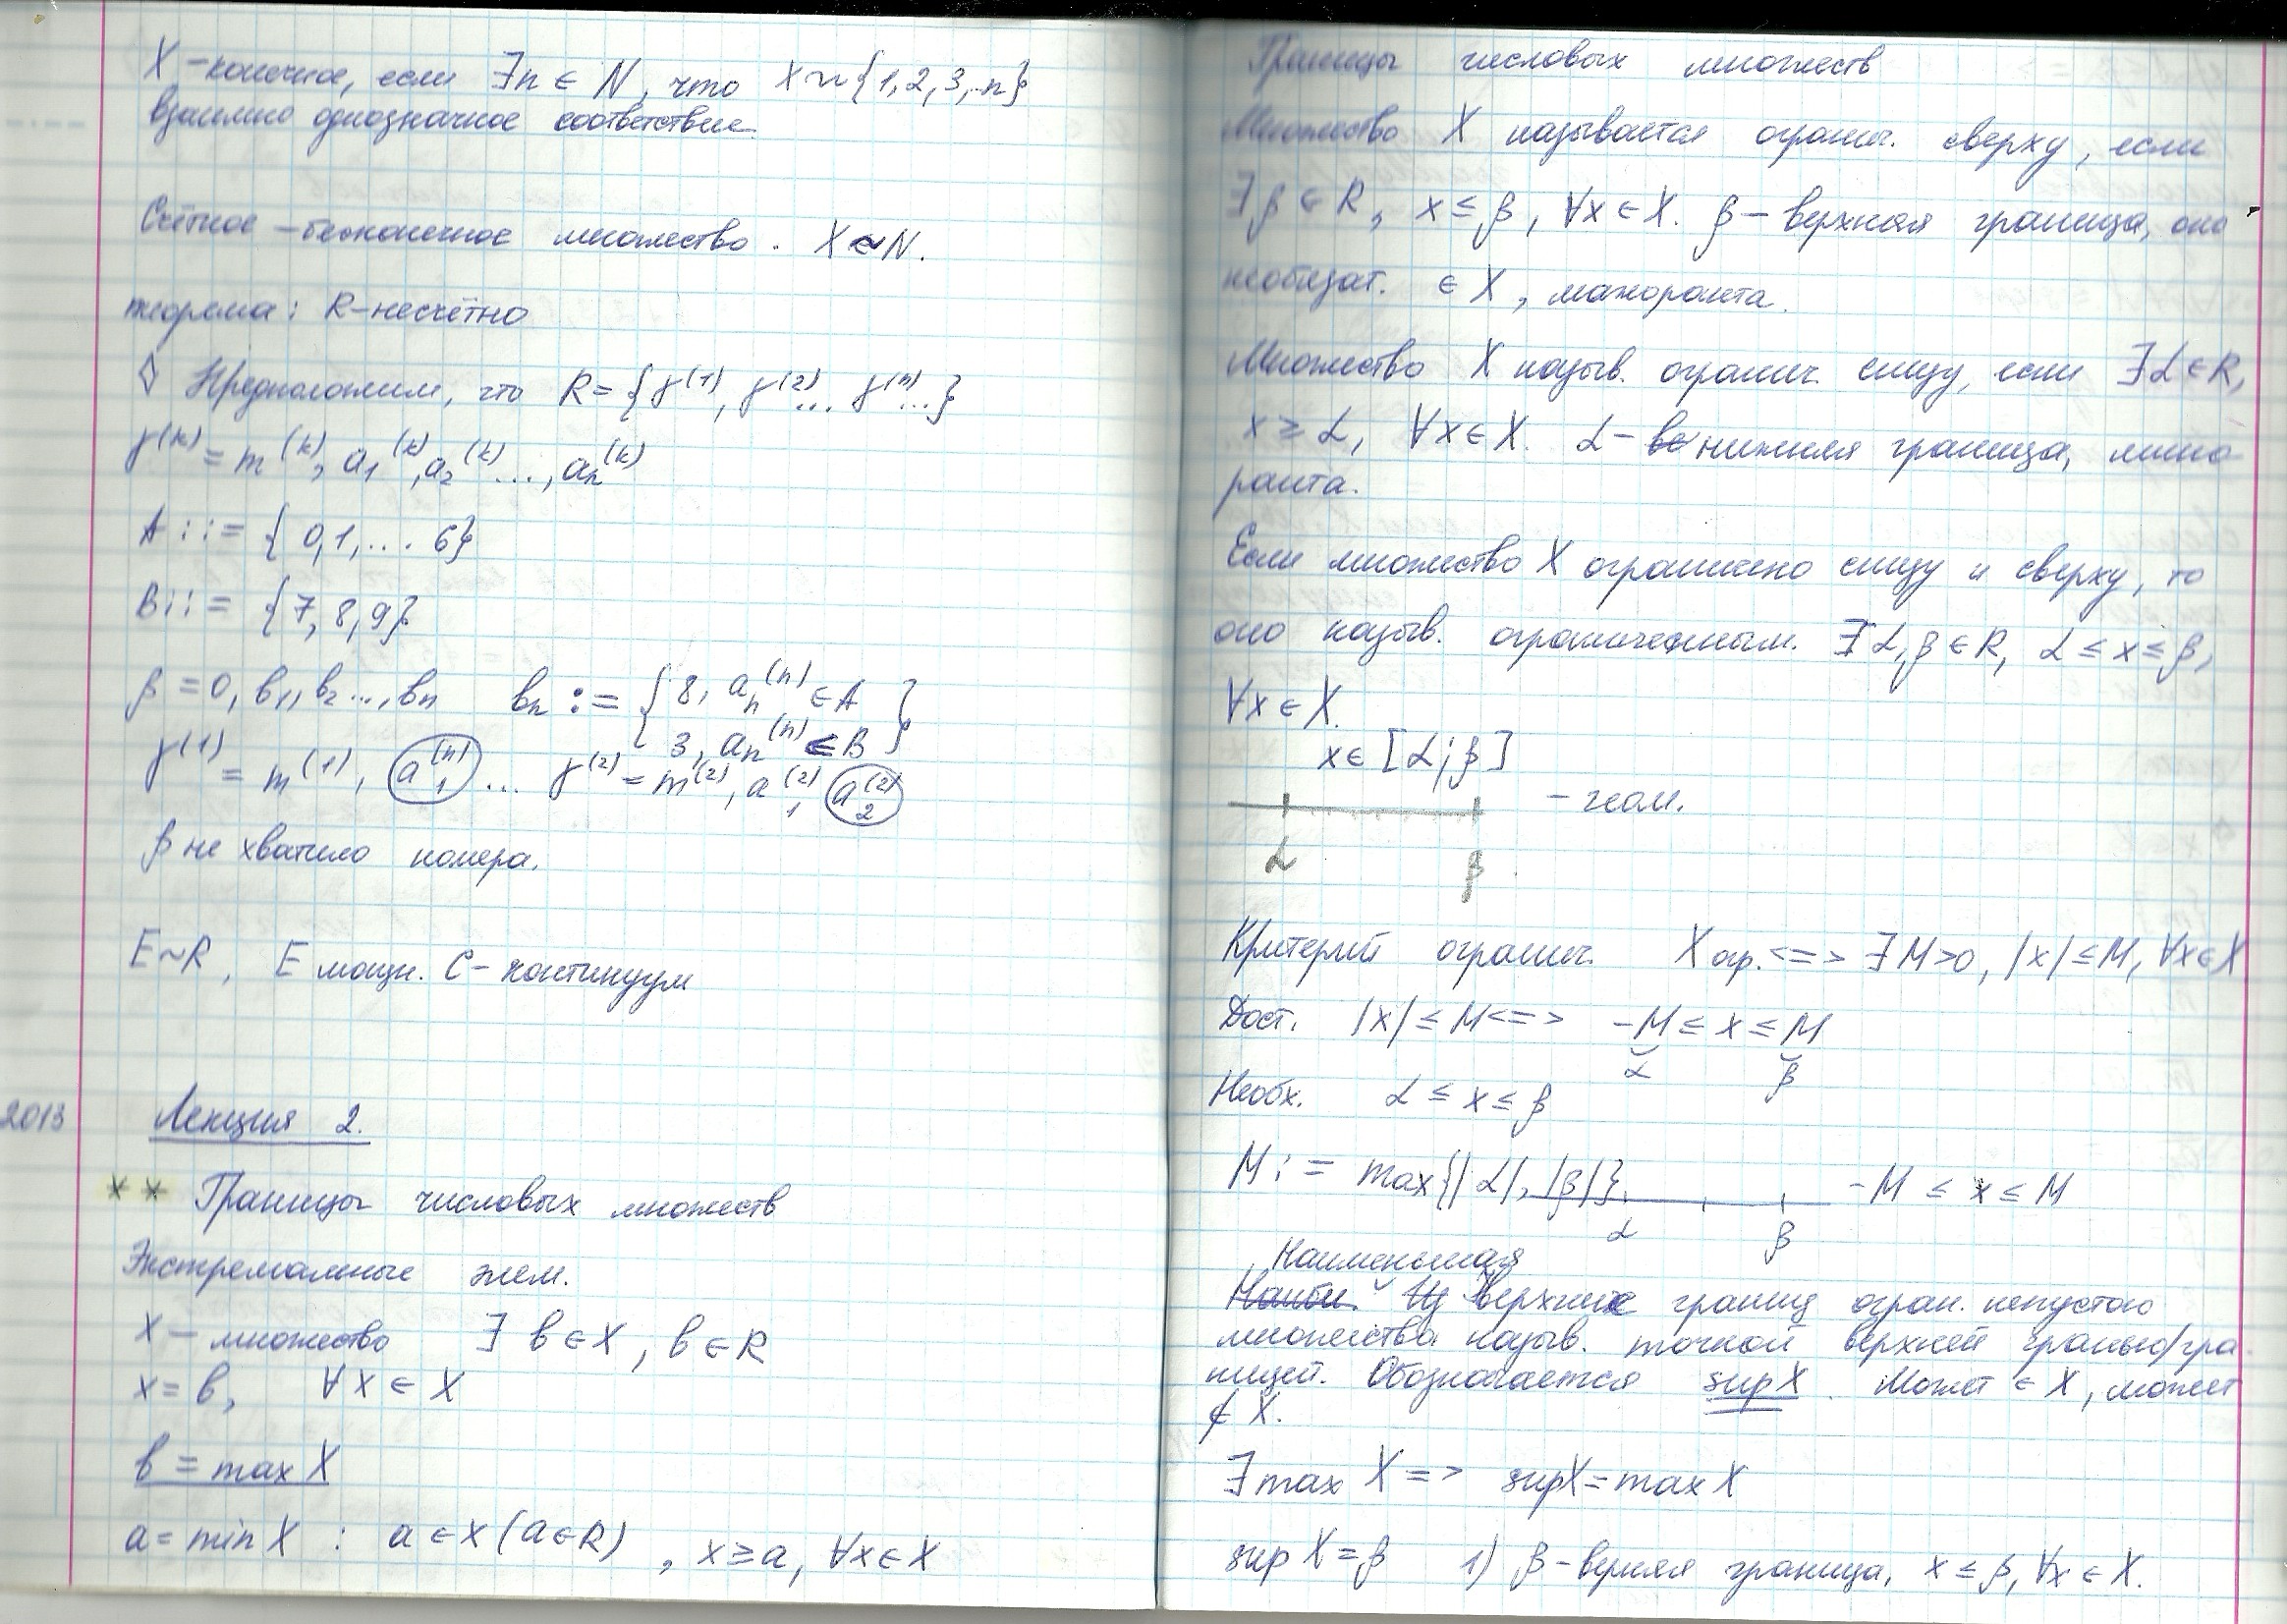 X – конечное, если ∃n ∈ N, что X ~ {1, 2, 3, ..n}
взаимно однозначное соответствие.
Счётное – бесконечное множество. X ~ N.
теорема: R – несчётно
◊ Предположим, что R = {γ⁽¹⁾, γ⁽²⁾... γ⁽ⁿ⁾...}
γ⁽ᵏ⁾ = m⁽ᵏ⁾, a₁⁽ᵏ⁾, a₂⁽ᵏ⁾ ..., aₙ⁽ᵏ⁾
A ::= { 0, 1, ... 6}
B ::= {7, 8, 9}
β = 0, в₁, в₂ ..., вn вn := { 8, aₙ⁽ⁿ⁾ ∈ A
3, aₙ⁽ⁿ⁾ ∈ B }
γ⁽¹⁾ = m⁽¹⁾, a₁⁽ⁿ⁾ ... γ⁽²⁾ = m⁽²⁾, a₁⁽²⁾ a₂⁽²⁾
β не хватило номера.
E ~ R, E мощн. C – континуум
2013 Лекция 2.
** Границы числовых множеств
Экстремальные элем.
X – множество ∃ в ∈ X, в ∈ R
x = в, ∀x ∈ X
в = max X
a = min X : a ∈ x (a ∈ R), x ≥ a, ∀x ∈ X
Границы числовых множеств
Множество X называется огранич. сверху, если
∃β ∈ R, x ≤ β, ∀x ∈ X. β – верхняя граница, она
необязат. ∈ X, мажоранта.
Множество X назыв. огранич. снизу, если ∃α ∈ R,
x ≥ α, ∀x ∈ X. α – нижняя граница, мино
ранта.
Если множество X ограничено снизу и сверху, то
оно назыв. ограниченным. ∃ α, β ∈ R, α ≤ x ≤ β,
∀x ∈ X.
x ∈ [α; β]
– геом.
α β
Критерий огранич. X огр. <=> ∃ M>0, |x| ≤ M, ∀x ∈ X
Дост. |x| ≤ M <=> -M ≤ x ≤ M
α β
Необх. α ≤ x ≤ β
M := max{|α|, |β|} -M ≤ x ≤ M
α β
Наименьшая
Из верхних границ огран. непустого
множества назыв. точной верхней гранью/гра
ницей. Обозначается sup X. Может ∈ X, может
∉ X.
∃ max X => sup X = max X
sup X = β 1) β – верхняя граница, x ≤ β, ∀x ∈ X.